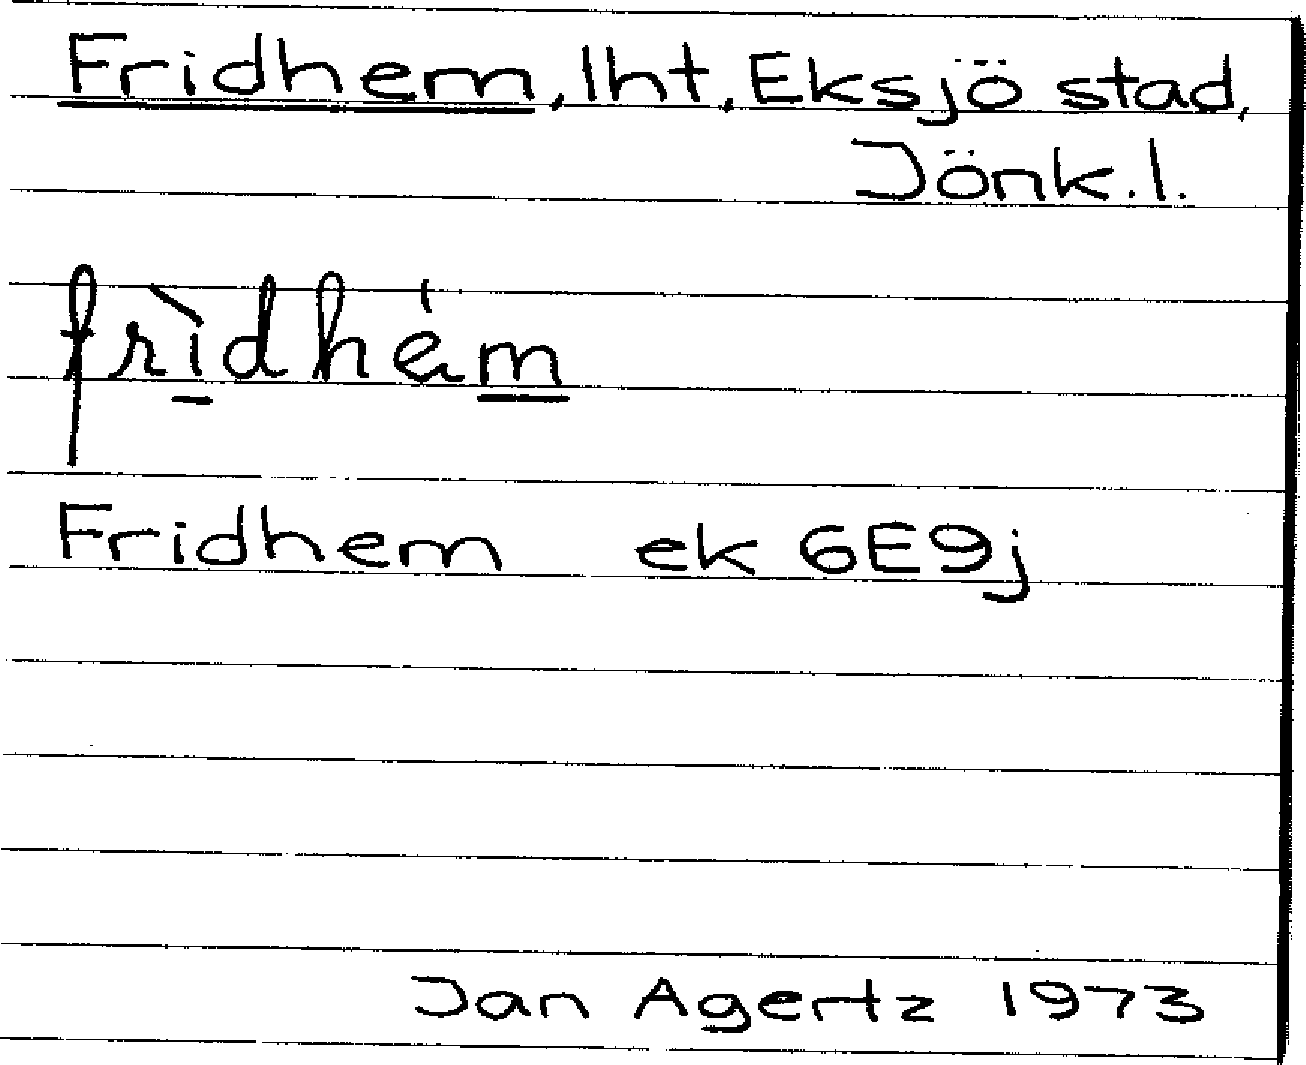 Fridhem, lht, Eksjö stad,
Jönk.l.
frìdhém
Fridhem ek 6E9j
Jan Agertz 1973